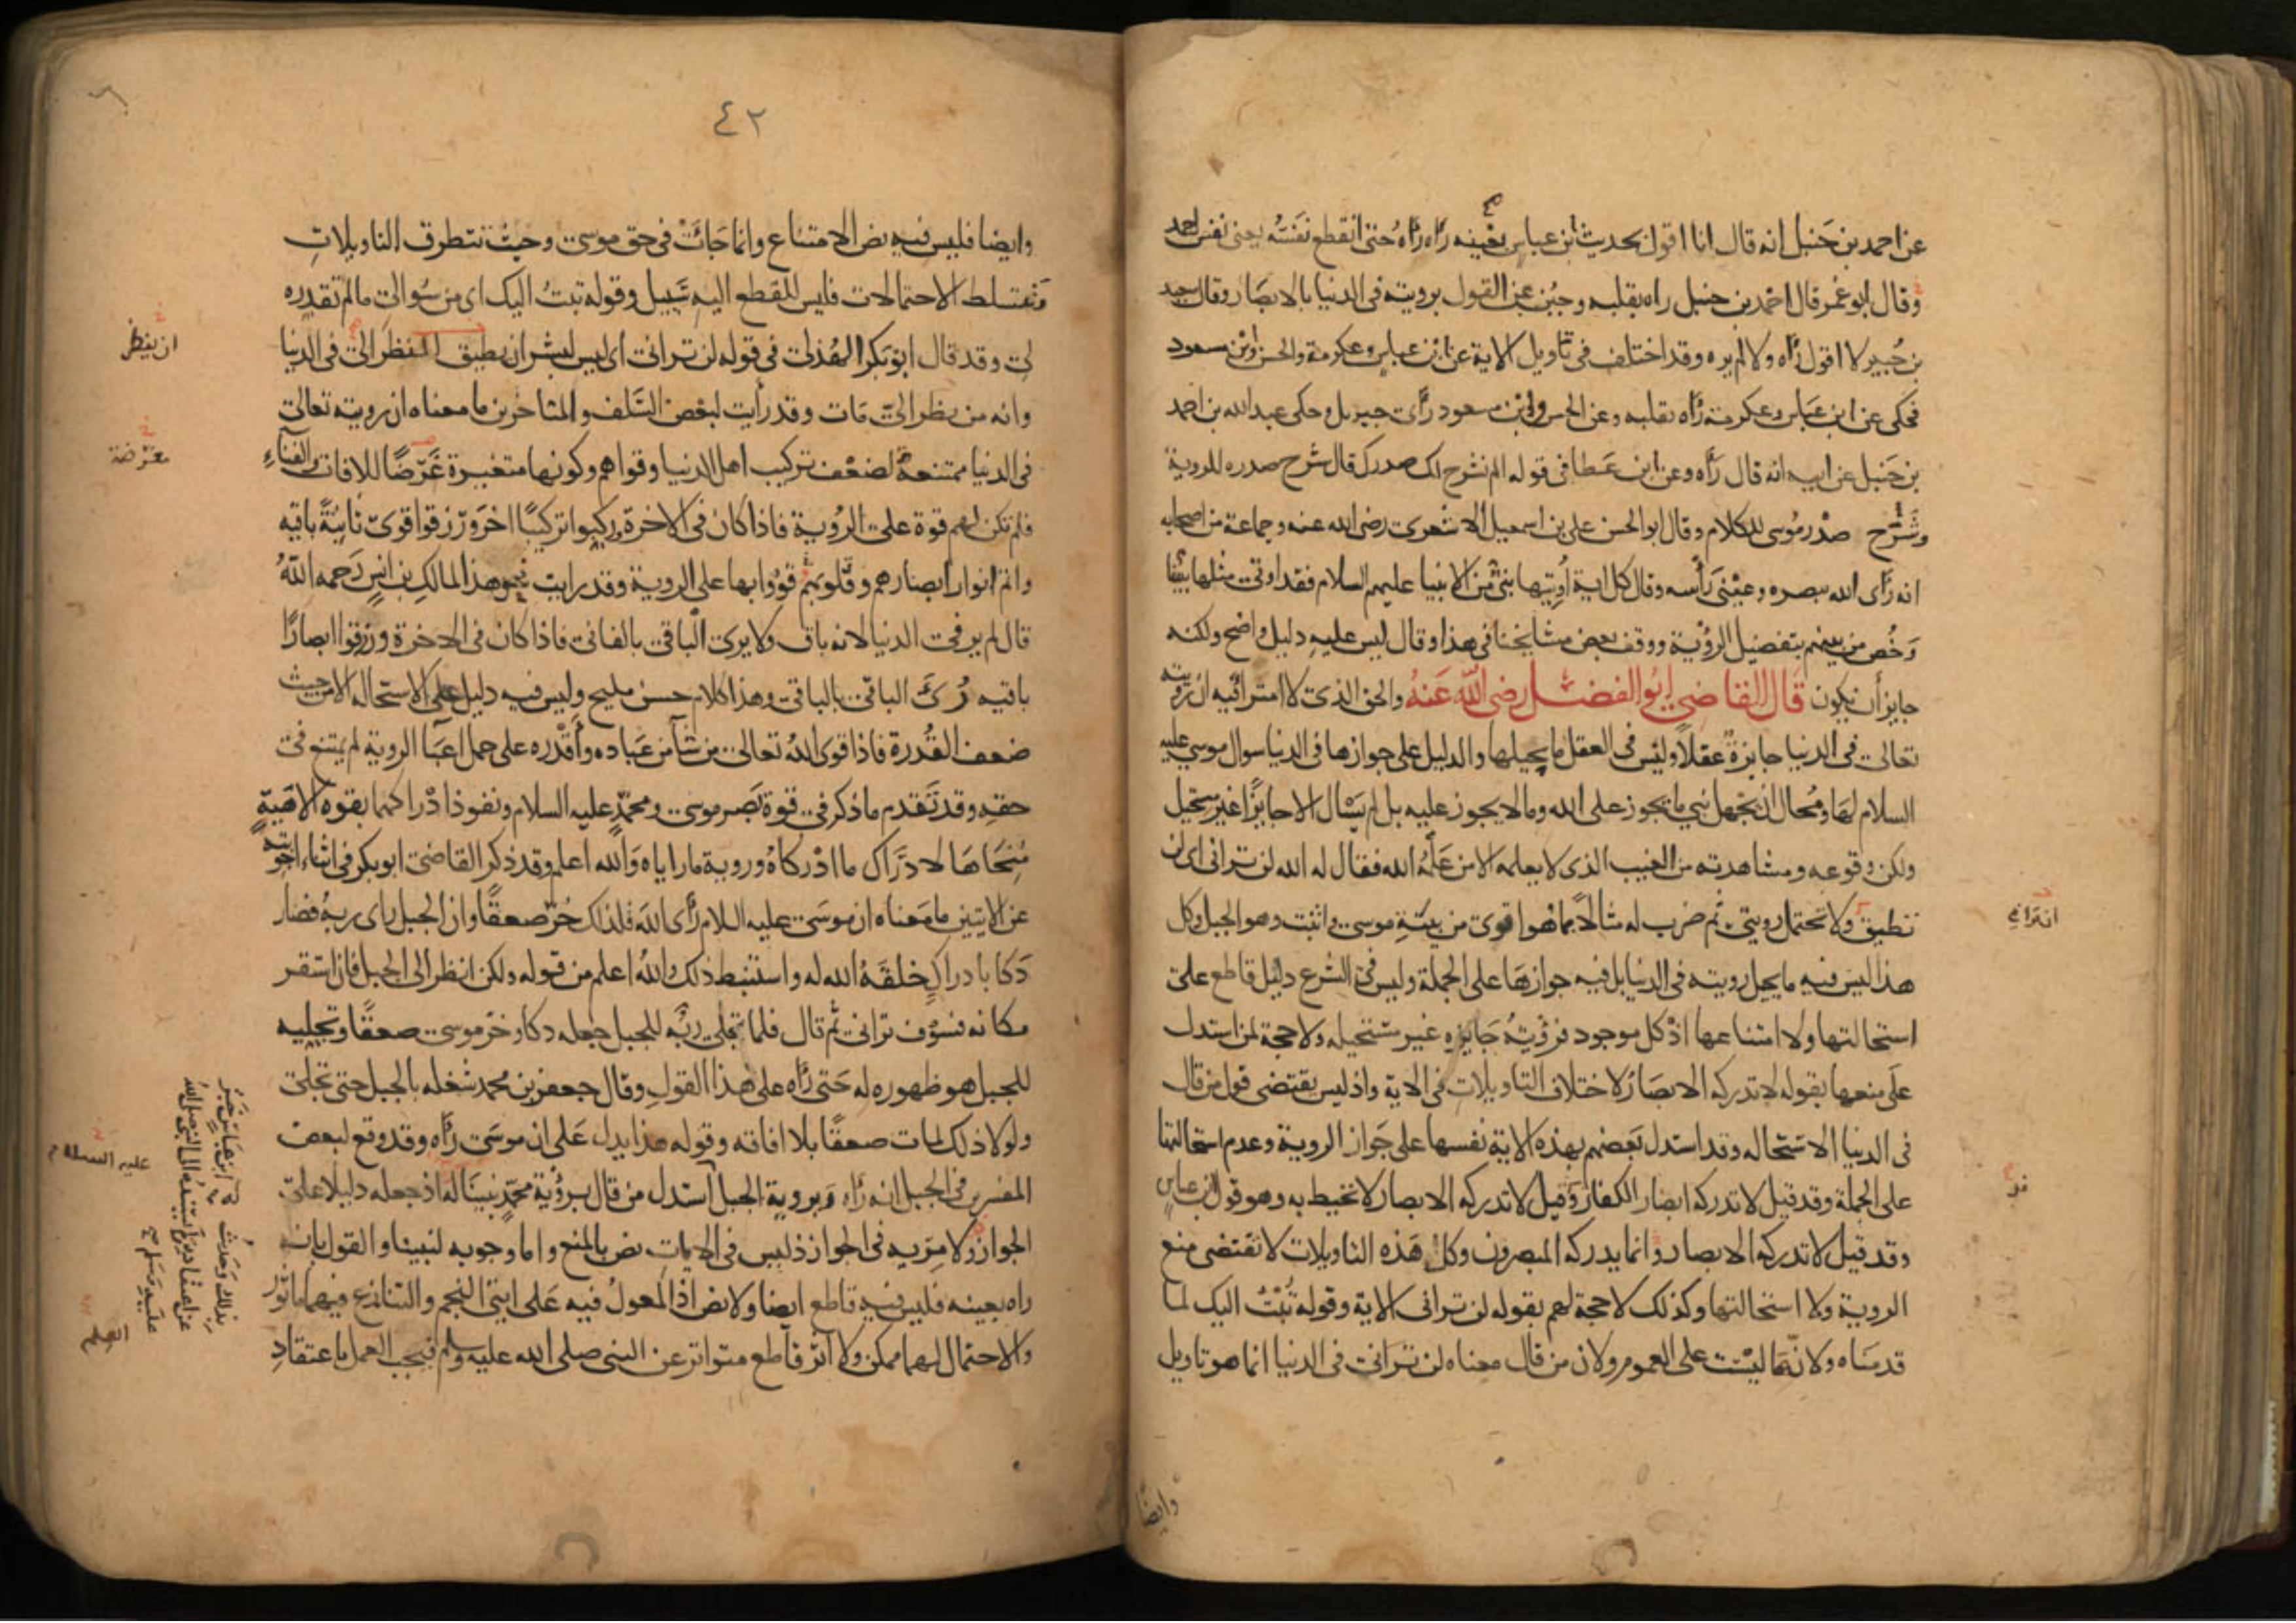 عن احمد بن حَنبل انه قال انا اقول بحديث ابن عباس بعَينه رَاه رَاهُ حتى انقطع نَفَسُه يعنى نفس احمد
وقال ابو عُمر قال احمد بن حنبل راه بقلبه وجَبُن عن القول برويته فى الدنيا بالابصَار وقال سعيد
بن جُبير لا اقول رَاه ولا لم يره وقد اختلف فى تاويل الاية عن ابن عباس وعكرمة والحسن وابن مسعود
فحكى عن ابن عَباس وعكرمة رَاه بقلبه وعن الحسن وابن مسعود رَأى جبريل وحكى عبد الله بن احمد
بن حَنبل عن ابيه انه قال رَاه وعن ابن عَطا فى قوله الم نشرح لك صدرك قال شرح صدره للروية
وشَرَح صدْر مُوسى للكلام وقال ابو الحسن على بن اسمعيل الاشعرى رضى الله عنه وجماعة من اصحابه
انه رَأى الله ببصره وعينَى رَأسه وقال كل اية أُوتيها نبىّ من الانبيا عليهم السلام فقد اوتى مثلها نبيّنا
وَخُص من بينهم بتفضيل الرؤية ووقف بعض مشايخنا فى هذا وقال ليس عليه دليل واضح ولكنه
جايز أن يكون قَال القاضى ابُو الفضل رضى اللّه عَنهُ والحق الذى لا امترا فيه ان رويته
تعالى فى الدنيا جايزةٌ عقلًا وليس فى العقل ما يحيلها والدليل على جوازها فى الدنيا سوال موسى عليه
السلام لهَا ومُحال ان يَجهل نبي ما يَجوز على الله وما لا يجوز عليه بل لم يَسْال الا جايزًا غير مستحيل
ولكن وقوعه ومشاهدته من الغيب الذى لا يعلمه الا من عَلّمَهُ الله فقال له الله لن ترانى اى لن
تطيق ولا تحتمل رويتى ثم ضرب له مثالًا مما هو اقوى من بِنْيَةِ موسى واثبت وهو الجبل وكل
هذا ليس فيه ما يحيل رويته فى الدنيا بل فيه جوازهَا على الجملة وليس فى الشرع دليل قاطع على
استحالتها ولا امتناعها اذْ كل موجود فرؤيَتُه جَايزه غير مستحيله ولا حجة لمن استدل
عَلى منعها بقوله لا تدركه الابصَار لاختلاف التاويلات فى الاية واذ ليس يقتضى قول من قال
فى الدنيا الاستحاله وقد استدل بَعضهم بهذه الاية نفسها على جَواز الروية وعدم استحالتها
على الجملة وقد قيل لا تدركه ابصَار الكفار وقيل لا تدركه الابصار لا تحيط به وهو قول ابن عباسٍ
وقد قيل لا تدركه الابصار وانما يدركه المبصرون وكل هَذه التاويلات لا تقتضى منع
الروية ولا استحالتها وكذلك لا حجة لهم بقوله لن ترانى الاية وقوله تُبْتُ اليك لما
قدمنَاه ولانّها ليْسَت على العموم ولان من قال معناه لن ترانى فى الدنيا انما هو تاويل
وايضًا
٤٢
وايضا فليس فيه نص الامتناع وانما جَائَتْ فى حق موسى وحيث تتطرق التاويلات
وَتتسلط الاحتمالات فليس للقطع اليه سَبيل وقوله تبتُ اليك اى من سُوالى ما لم تقدره
لى وقد قال ابو بَكر الهُذلى فى قوله لن ترانى أى ليس لبشر ان يطيق النظر الىّ فى الدنيا
ان ينظر
وانه من ينظر الىّ مَات وقد رأيت لبعض السَّلف والمتاخرين ما معناه ان رويته تعالى
فى الدنيا ممتنعةٌ لضعْف تركيب اهل الدنيا وقواهم وكونها متغيرة غَرَضًا للافات والفنَاءِ
معترضة
فلم تكن لهم قوة على الرُوية فاذا كان فى الاخرة وركبوا تركيبًا اخَر ورزقوا قوىً ثابتةً باقيه
واتم انوار أبصارهم وقلوبهم قوُوا بها على الروية وقد رايت نحو هذا لمالكِ بن انسٍ رَحمه اللّهُ
قال لم ير فى الدنيا لانه باقٍ ولا يرى الباقى بالفانى فاذا كان فى الاخرة ورُزقوا ابصارًا
باقيه رُئىَ الباقى بالباقى وهذا كلام حسن مليح وليس فيه دليل على الاستحاله الا من حيث
ضعف القُدرة فاذا قوى اللّهُ تعالى من شآ من عبَاده وأَقْدَره على حمل اعبَا الروية لم يمتنع فى
حقه وقد تَقدم ما ذكر فى قوة بَصر موسى ومحمّدٍ عليه السلام ونفوذ ادْراكهما بقوه الاهيةٍ
مُنِحَاهَا لادرَاك ما ادْركاهُ وروية ما راياه وَالله اعلم وقد ذكر القاضى ابو بكر فى اثناء اجوبته
عن الايتين ما مَعناه ان موسَى عليه السلام رَأى اللهَ فلذلك خرّ صعقًا وان الجبل راى ربهُ فصَار
دَكا بادراكٍ خلقَهُ الله له واستنبط ذلك واللهُ اعلم من قوله ولكن انظر الى الجبل فان استقر
مكانه فسَوْف ترانى ثم قال فلما تجلى ربّه للجبل جعله دكا وخرّ موسى صعقًا وتجليه
للجبل هو ظهوره له حَتى رَاه على هذا القول وقال جعفر بن محمد شغله بالجبل حتى تجلى
ولولا ذلك لمات صعقًا بلا افاقه وقوله هذا يدل عَلى ان موسَى رَاه وقد وقع لبعض
عليه السلام
المفسرين فى الجبل انه رَاه وَبروية الجبل اسْتدل من قال برؤية محمّدٍ نبينَا له اذ جعله دليلًا علىَ
الجواز ولا مِرَيه فى الجواز اذ ليس فى الايات نص بالمنع واما وجوبه لنبينا والقول بانه
راه بعينه فليس فيه قاطع ايضا ولا نص اذ المعول فيه عَلى ايتىْ النجم والتنازع فيهما ماثور
والاحتمال لهما ممكن ولا اثر قاطع متواتر عن النبى صلى الله عليه وسلم فيجب العمل باعتقادِ